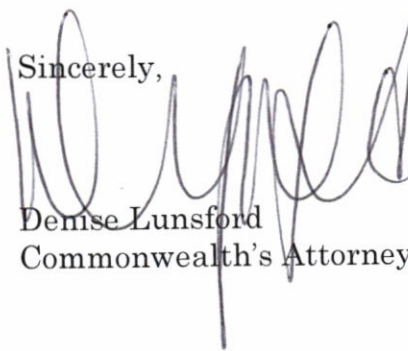 Sincerely,
Denise Lunsford
Commonwealth's Attorney